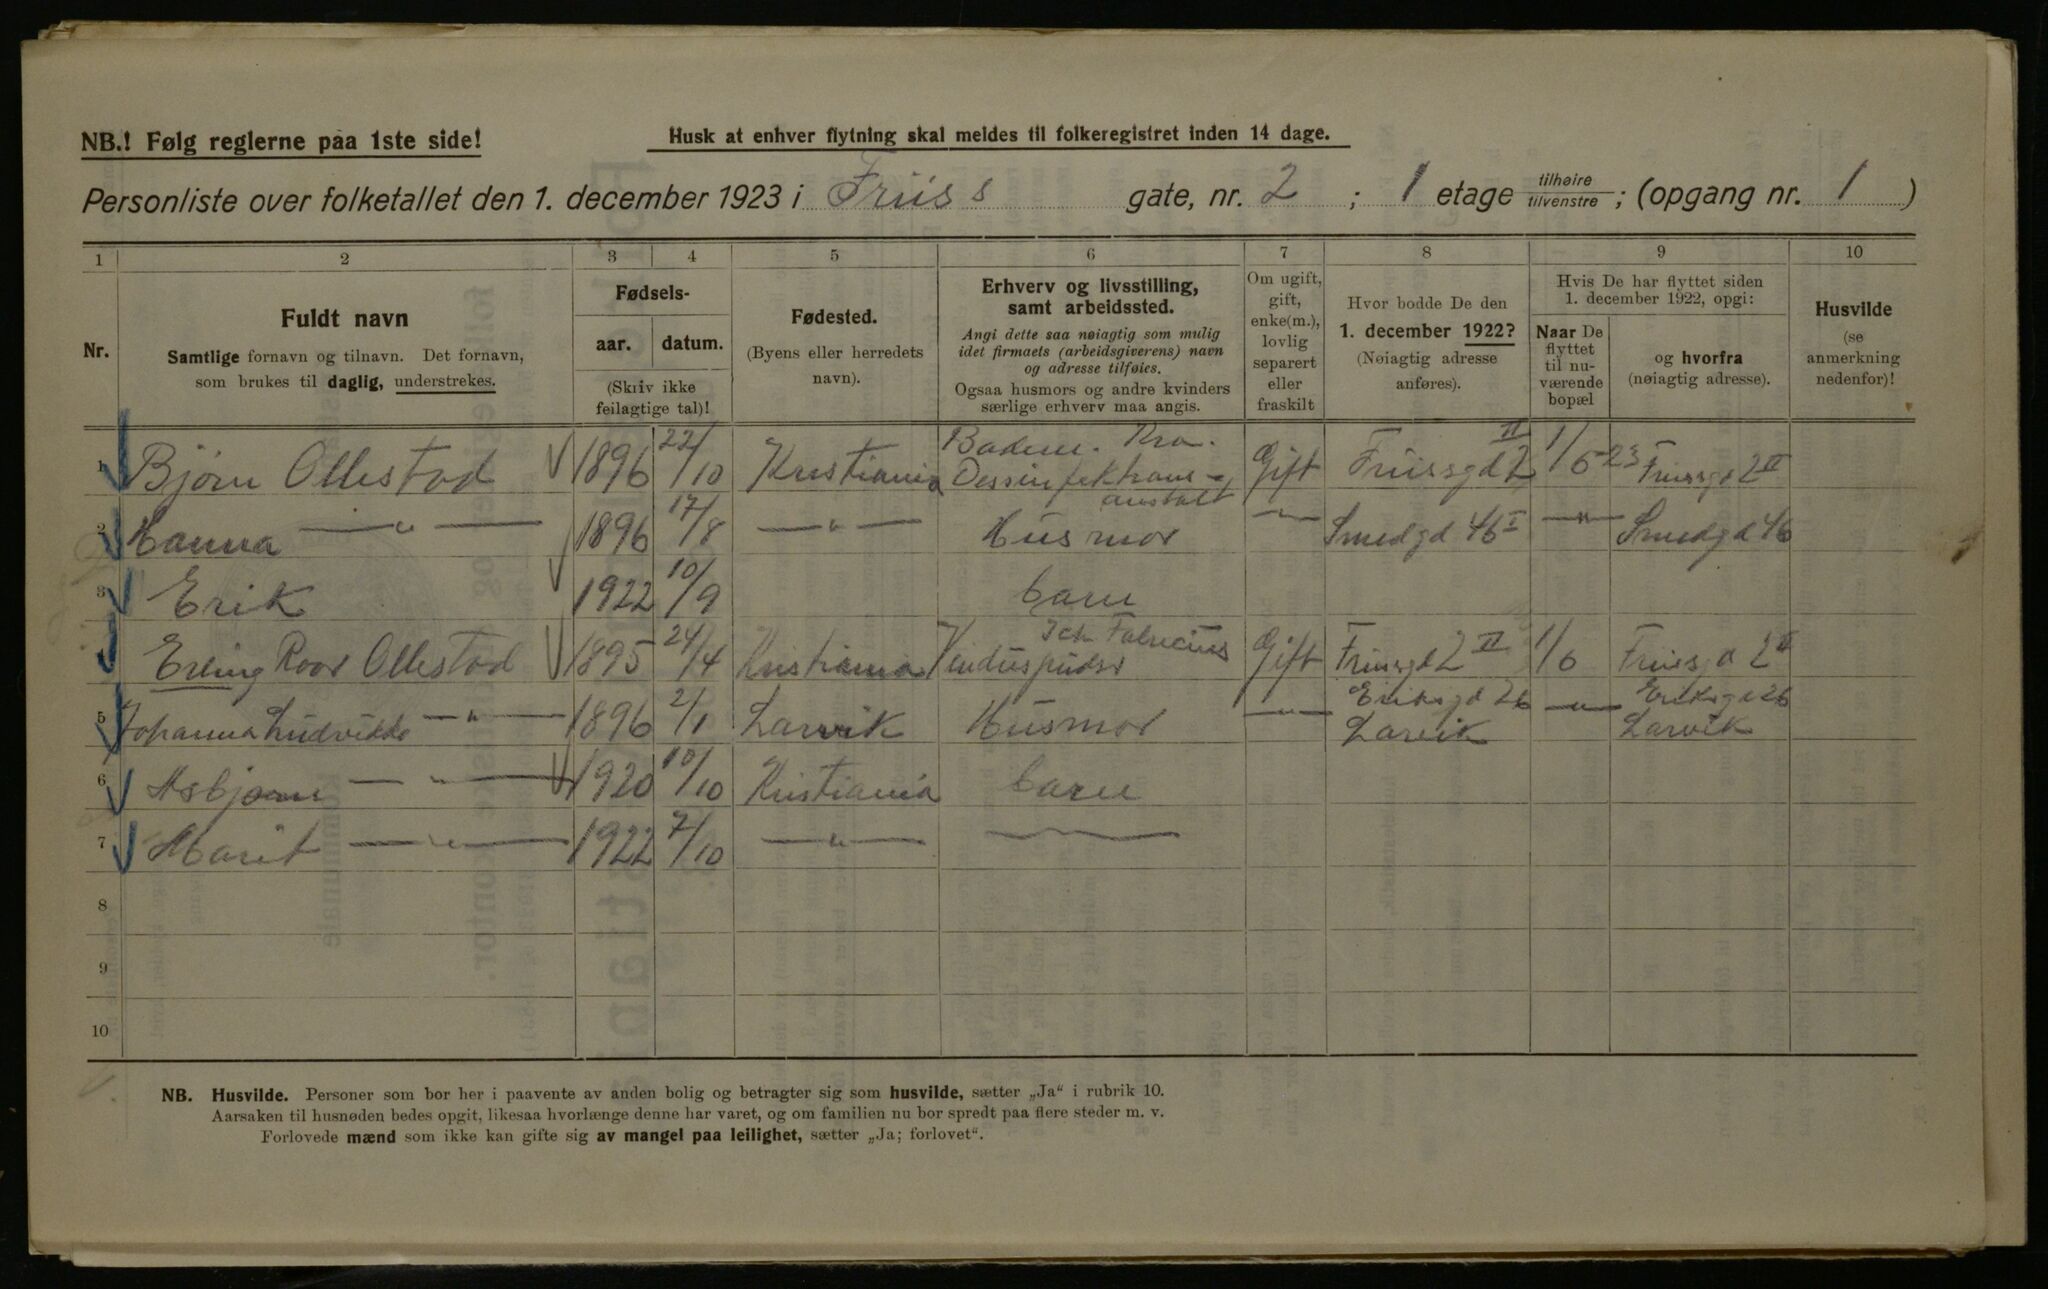 NB.! Følg reglerne paa 1ste side!
Husk at enhver flytning skal meldes til folkeregistret inden 14 dage.
Personliste over folketallet den 1. december 1923 i Friis s gate, nr. 2 ; 1 etage tilhøire/tilvenstre ; (opgang nr. 1 )
1 2 3 4 5 6 7 8 9 10
Nr.
Fuldt navn
Samtlige fornavn og tilnavn. Det fornavn,
som brukes til daglig, understrekes.
Fødsels-
aar. datum.
(Skriv ikke
feilagtige tal)!
Fødested.
(Byens eller herredets
navn).
Erhverv og livsstilling,
samt arbeidssted.
Angi dette saa nøiagtig som mulig
idet firmaets (arbeidsgiverens) navn
og adresse tilføies.
Ogsaa husmors og andre kvinders
særlige erhverv maa angis.
Om ugift,
gift,
enke(m.),
lovlig
separert
eller
fraskilt
Hvor bodde De den
1. december 1922?
(Nøiagtig adresse
anføres).
Hvis De har flyttet siden
1. december 1922, opgi:
Naar De
flyttet
til nu-
værende
bopæl
og hvorfra
(nøiagtig adresse).
Husvilde
(se
anmerkning
nedenfor)!
1 Bjørn Ollestad 1896 22/10 Kristiania Badem. Kra. Dessinfektions-anstalt Gift Friisgd 2 II 1/6 23 Friisgd 2 II
2 Hanna — " — 1896 17/8 — " — Husmor — " — Smedgd 46 I — " — Smedgd 46
3 Erik 1922 10/9 barn
4 Erling Roar Ollestad 1895 24/4 Kristiania Vinduspudser Gift Friisgd 2 II 1/6 Friisgd 2 II
5 Johanna Ludvikke — " — 1896 2/1 Larvik Husmor — " — Eriksgd 26 Larvik — " — Eriksgd 26 Larvik
6 Asbjørn — " — 1920 10/10 Kristiania barn
7 Marit — " — 1922 7/10 — " — —
8
9
10
NB. Husvilde. Personer som bor her i paavente av anden bolig og betragter sig som husvilde, sætter „Ja“ i rubrik 10.
Aarsaken til husnøden bedes opgit, likesaa hvorlænge denne har varet, og om familien nu bor spredt paa flere steder m. v.
Forlovede mænd som ikke kan gifte sig av mangel paa leilighet, sætter „Ja; forlovet“.